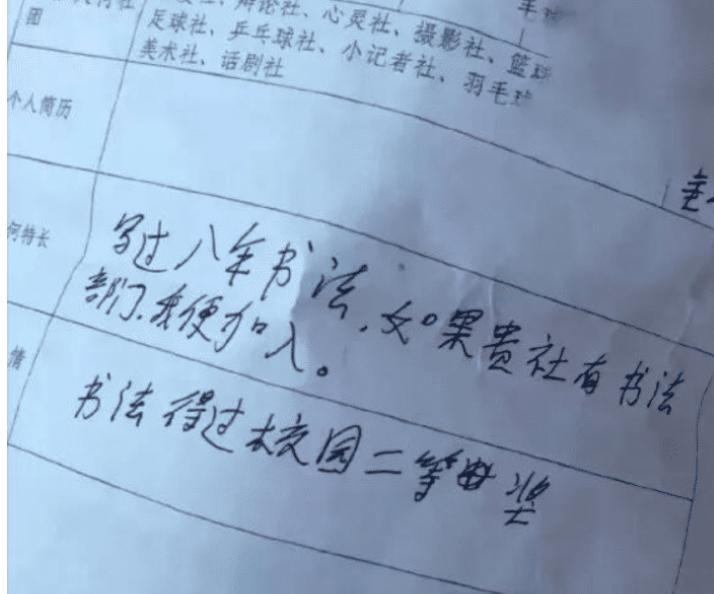 团
辩论社、心灵社、摄影社、篮球
足球社、乒乓球社、小记者社、羽毛球
美术社、话剧社
个人简历
何特长
写过八年书法，如果贵社有书法
部门，我便加入。
情
书法得过校园二等奖